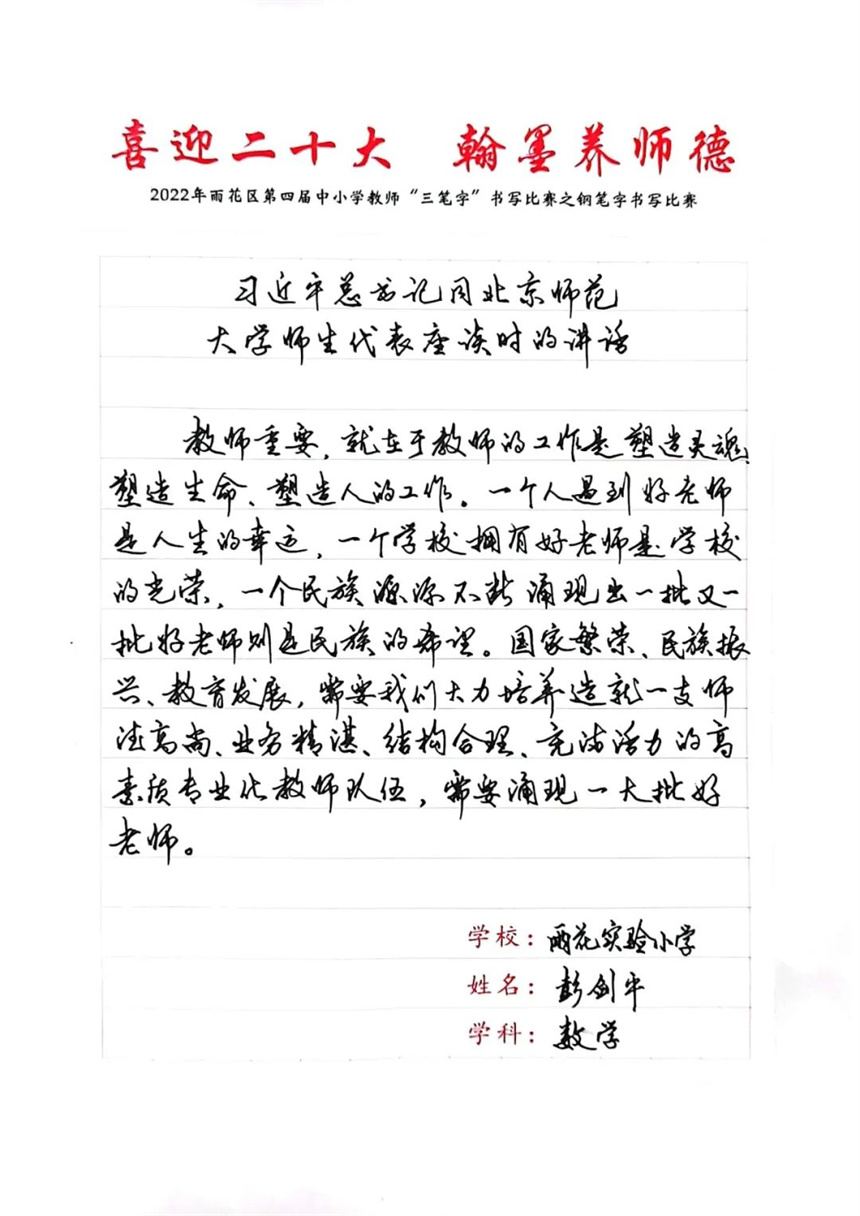 喜迎二十大 翰墨养师德
2022年雨花区第四届中小学教师“三笔字”书写比赛之钢笔字书写比赛
习近平总书记同北京师范
大学师生代表座谈时的讲话
教师重要，就在于教师的工作是塑造灵魂、
塑造生命、塑造人的工作。一个人遇到好老师
是人生的幸运，一个学校拥有好老师是学校
的光荣，一个民族源源不断涌现出一批又一
批好老师则是民族的希望。国家繁荣、民族振
兴、教育发展，需要我们大力培养造就一支师
德高尚、业务精湛、结构合理、充满活力的高
素质专业化教师队伍，需要涌现一大批好
老师。
学校：雨花实验小学
姓名：彭剑平
学科：数学